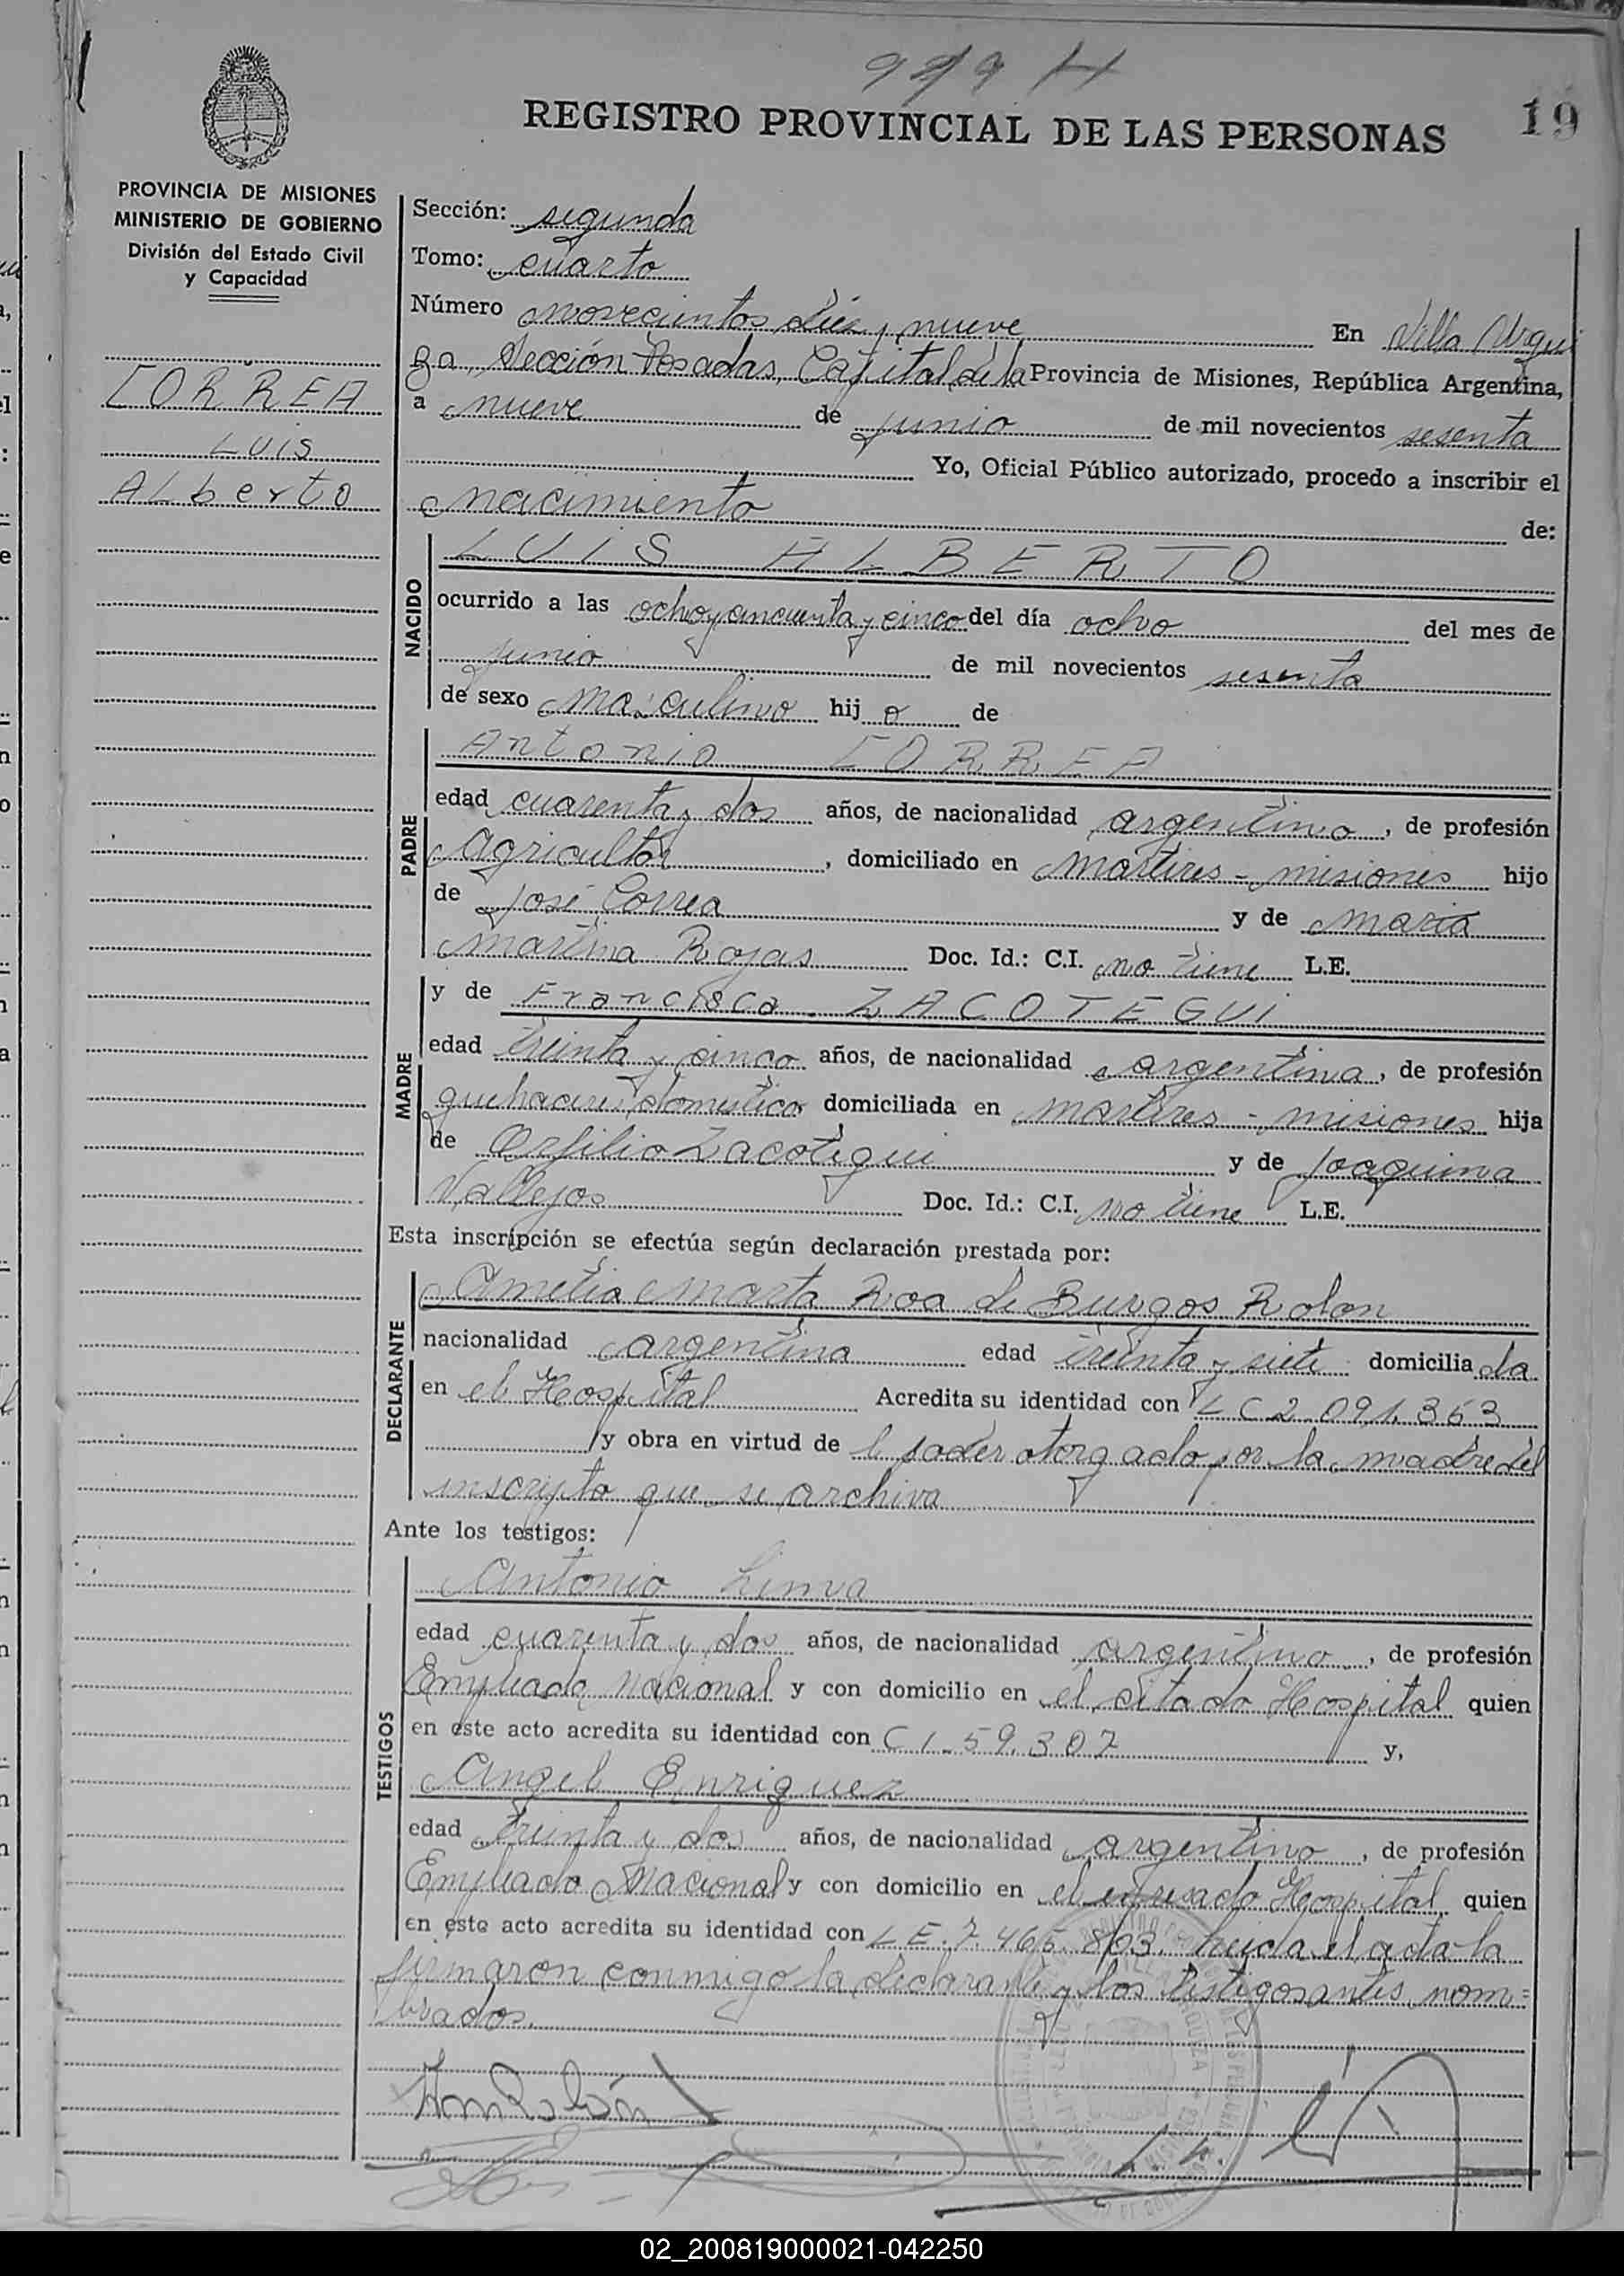 919 H
REGISTRO PROVINCIAL DE LAS PERSONAS
19
PROVINCIA DE MISIONES
MINISTERIO DE GOBIERNO
División del Estado Civil
y Capacidad
CORREA
LUIS
ALberto
Sección: segunda
Tomo: cuarto
Número novecientos diez y nueve En Villa Urqui
za, Sección Posadas, Capital de la Provincia de Misiones, República Argentina,
a nueve de junio de mil novecientos sesenta
Yo, Oficial Público autorizado, procedo a inscribir el
nacimiento de:
NACIDO
LUIS ALBERTO
ocurrido a las ocho y cincuenta y cinco del día ocho del mes de
junio de mil novecientos sesenta
de sexo masculino hij o de
PADRE
Antonio CORREA
edad cuarenta y dos años, de nacionalidad argentino, de profesión
Agricultor, domiciliado en Martires - misiones hijo
de José Correa y de Maria
Martina Rojas Doc. Id.: C.I. no tiene L.E.
MADRE
y de Francisca ZACOTEGUI
edad treinta y cinco años, de nacionalidad argentina, de profesión
quehaceres domesticos domiciliada en martires - misiones hija
de Orfilio Zacotegui y de Joaquina
Vallejos Doc. Id.: C.I. no tiene L.E.
Esta inscripción se efectúa según declaración prestada por:
DECLARANTE
Amelia Marta Roa de Burgos Rolon
nacionalidad argentina edad treinta y siete domicilia da
en el Hospital Acredita su identidad con LC 2.091.363
y obra en virtud de l poder otorgado por la madre del
inscripto que se archiva
Ante los testigos:
TESTIGOS
Antonio
edad cuarenta y dos años, de nacionalidad argentino, de profesión
Empleado Nacional y con domicilio en el citado Hospital quien
en este acto acredita su identidad con C I. 59.307 y,
Angel Enriquez
edad treinta y dos años, de nacionalidad argentino, de profesión
Empleado Nacional y con domicilio en el expresado Hospital quien
en este acto acredita su identidad con L E. 7.465.803. Leida el acta la
firmaron conmigo la declarante y los testigos antes nom=
brados.
02_200819000021-042250